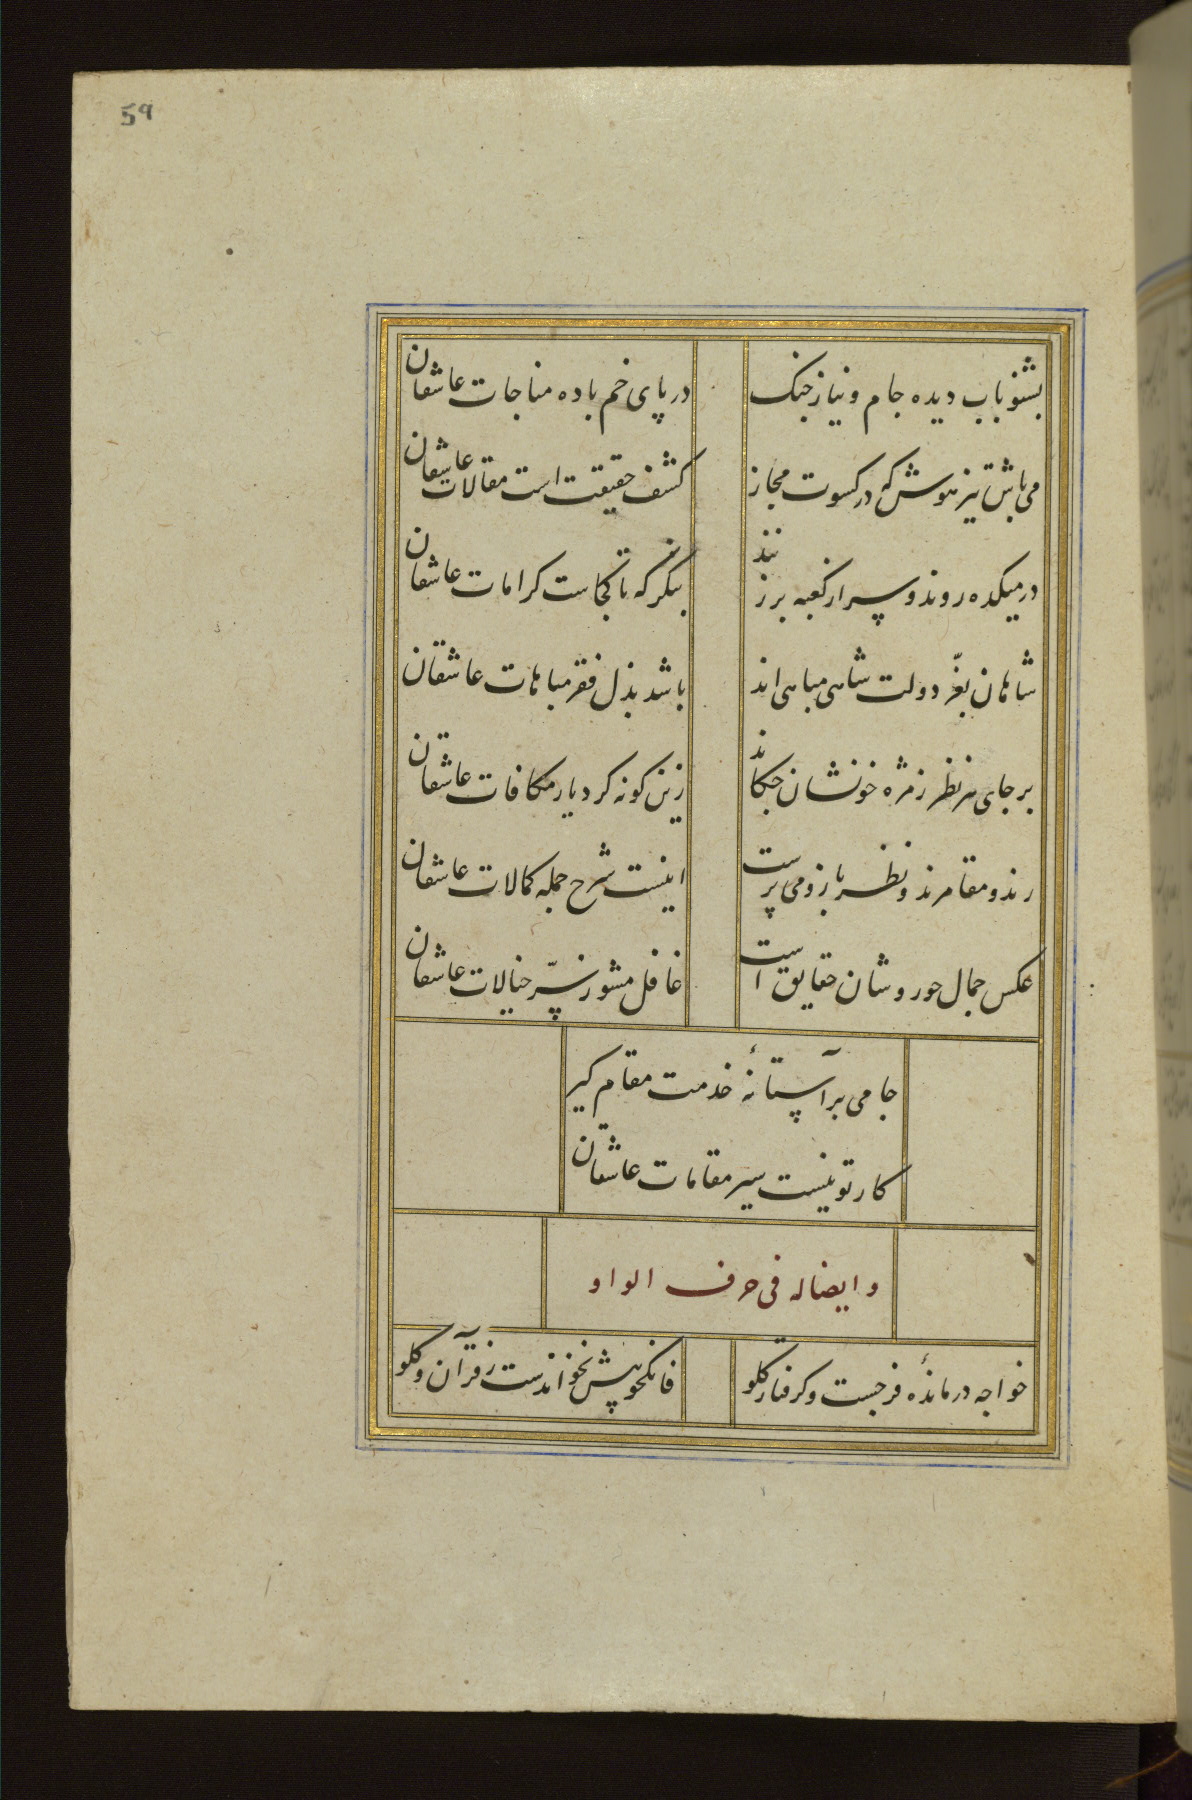 59
بشنو بآب دیده جام و نیاز جنک در پای خم باده مناجات عاشقان
می باش تیز هوش که در کسوت مجاز کشف حقیقت است مقالات عاشقان
در میکده روند و سر از کعبه بر زنند بنکر که تا کجاست کرامات عاشقان
شاهان بعزّ دولت شاهی مباهی اند باشد بذل فقر مباهات عاشقان
بر جای هر نظر ز مژه خونشان چکاند زین کونه کرد یار مکافات عاشقان
رند و مقامرند و نظر باز و می پرست اینست شرح جمله کمالات عاشقان
عکس جمال حور وشان حقایق است غافل مشو ز سرّ خیالات عاشقان
جامی بر آستانهٔ خدمت مقام کیر
کار تو نیست سیر مقامات عاشقان
و ایضا له فی حرف الواو
خواجه درماندهٔ فرجست و کرفتار کلو فانکحو پیش نخواندست ز قرآن و کلو